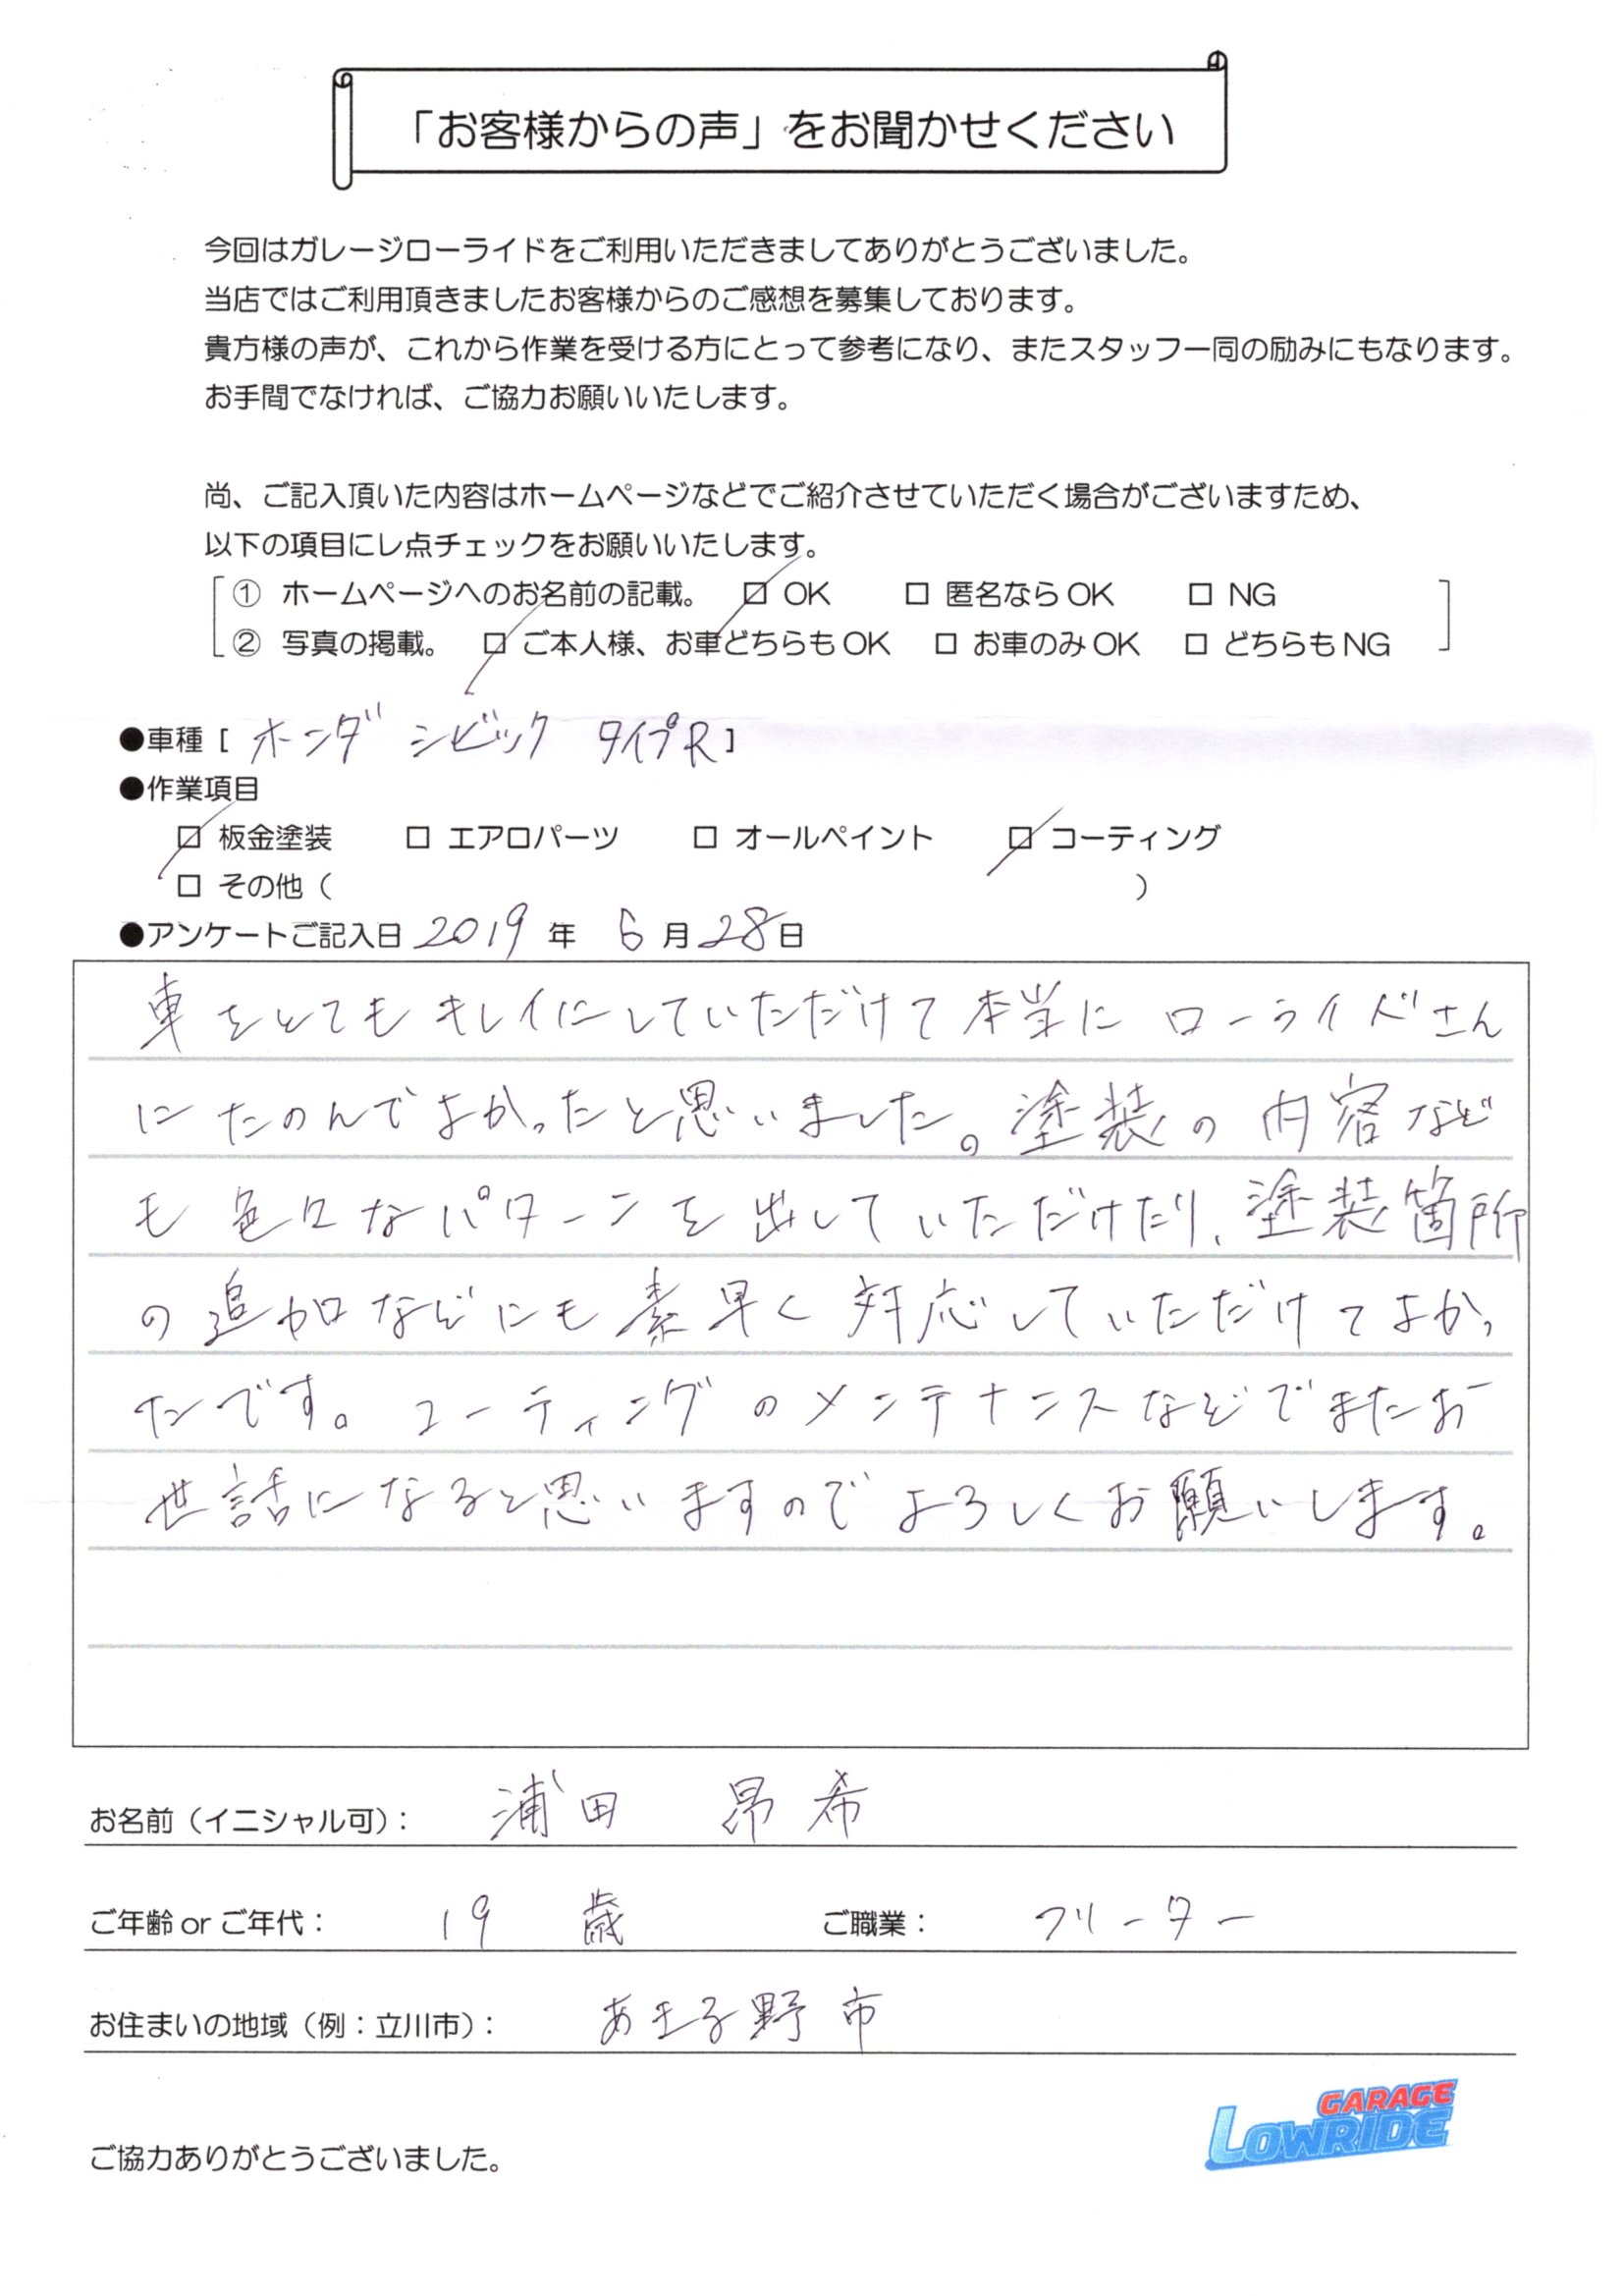 「お客様からの声」をお聞かせください
今回はガレージローライドをご利用いただきましてありがとうございました。
当店ではご利用頂きましたお客様からのご感想を募集しております。
貴方様の声が、これから作業を受ける方にとって参考になり、またスタッフ一同の励みにもなります。
お手間でなければ、ご協力お願いいたします。
尚、ご記入頂いた内容はホームページなどでご紹介させていただく場合がございますため、
以下の項目にレ点チェックをお願いいたします。
① ホームページへのお名前の記載。 ☑ OK □ 匿名なら OK □ NG
② 写真の掲載。 ☑ ご本人様、お車どちらも OK □ お車のみ OK □ どちらも NG
●車種 [ ホンダ シビック タイプR ]
●作業項目
☑ 板金塗装 □ エアロパーツ □ オールペイント ☑ コーティング
□ その他 ( )
●アンケートご記入日 2019 年 6 月 28 日
車をとてもキレイにしていただけて本当に ローライドさん
にたのんでよかったと思いました。塗装の内容など
も色々なパターンを出していただけたり、塗装箇所
の追加などにも素早く対応していただけてよかっ
たです。コーティングのメンテナンスなどでまたお
世話になると思いますのでよろしくお願いします。
お名前（イニシャル可）： 浦田 昂希
ご年齢 or ご年代： 19 歳 ご職業： フリーター
お住まいの地域（例：立川市）： あきる野市
ご協力ありがとうございました。
GARAGE
LOWRIDE